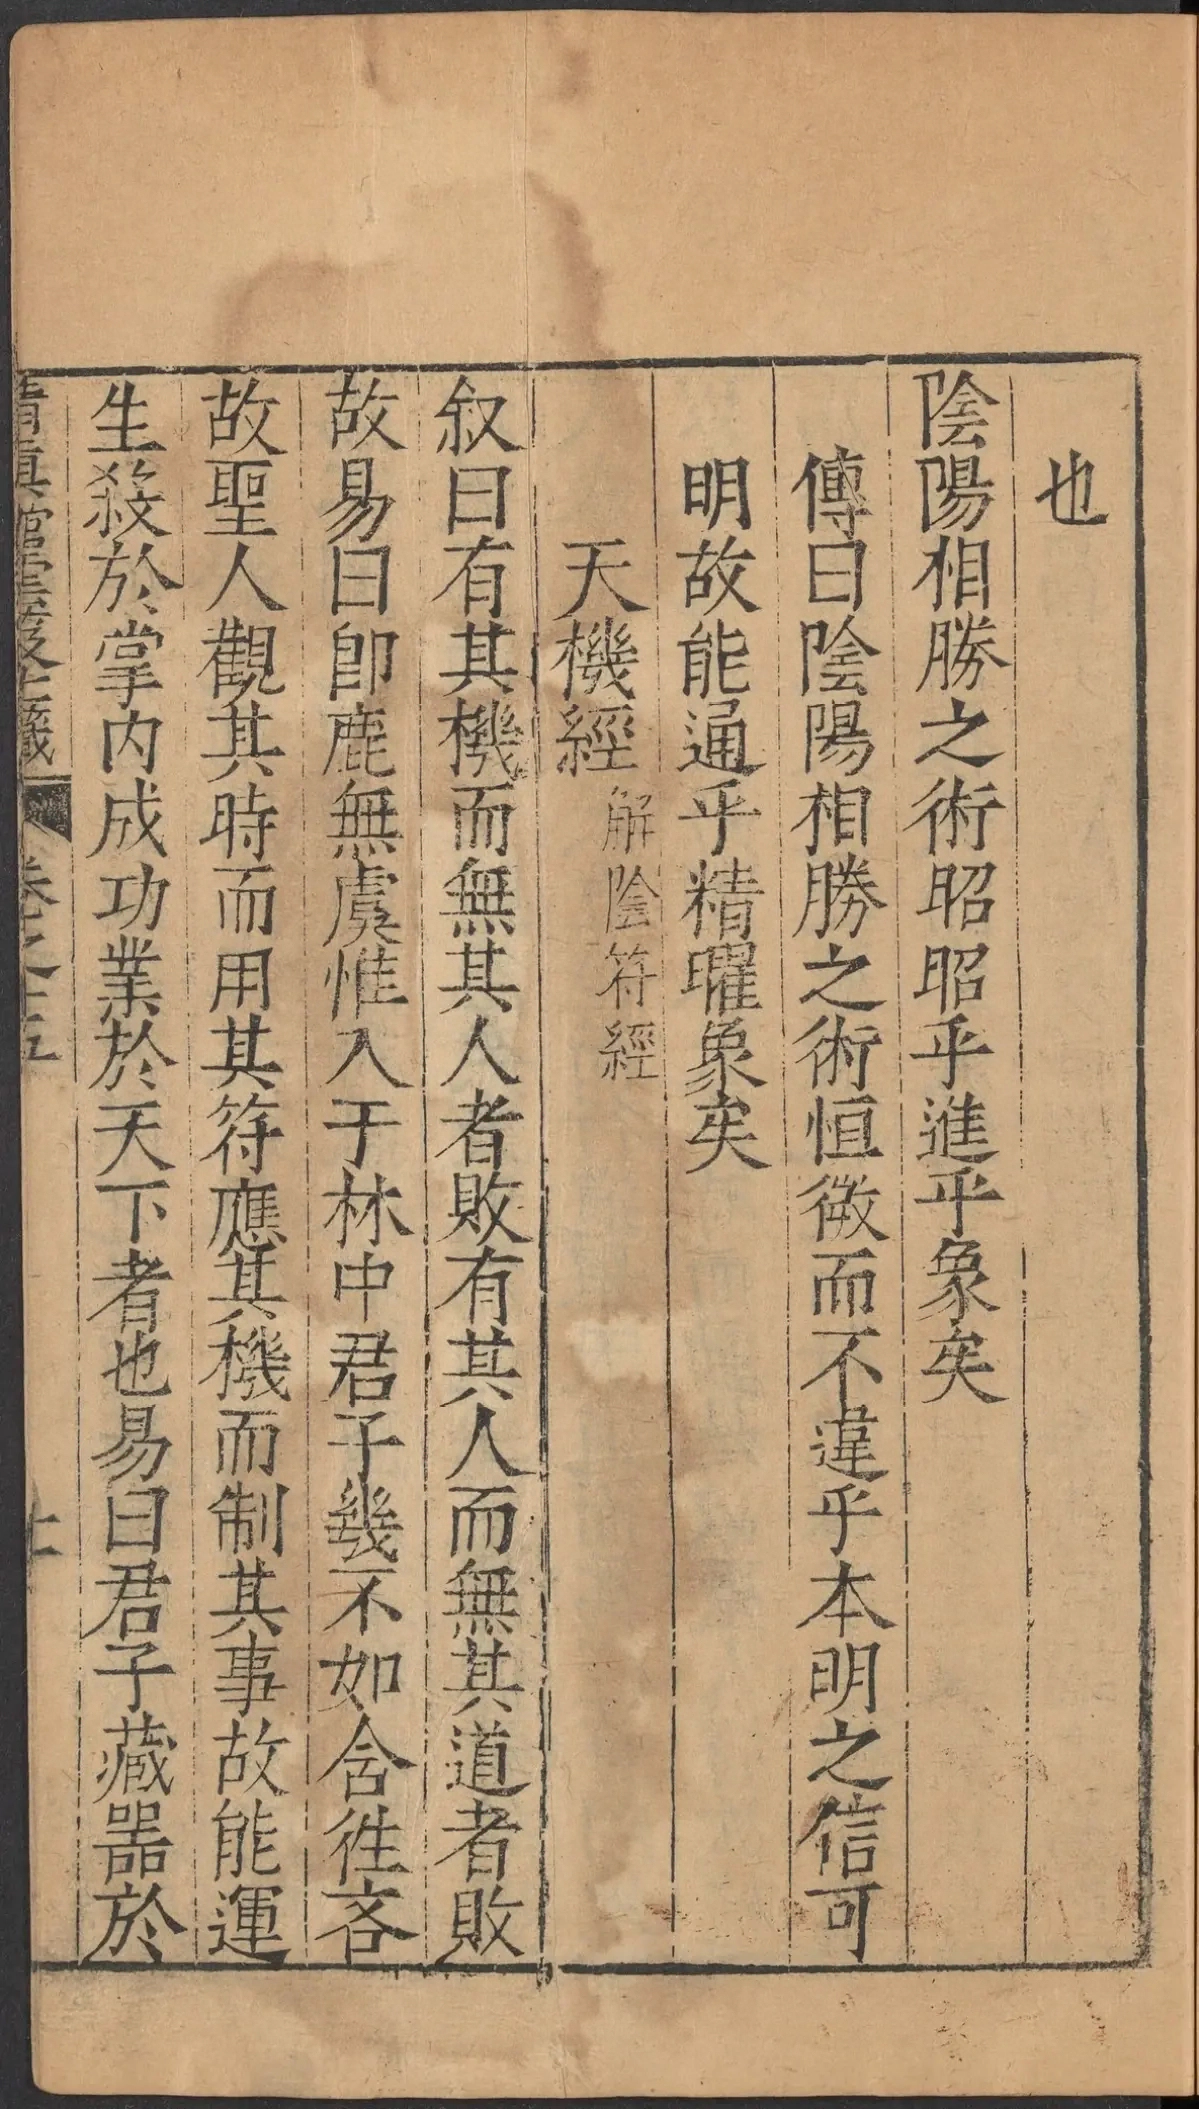 也
陰陽相勝之術昭昭乎進乎象矣
傳曰陰陽相勝之術恒微而不違乎本明之信可
明故能通乎精曜象矣
天機經 解陰符經
叙曰有其機而無其人者敗有其人而無其道者敗
故易曰卽鹿無虞惟入于林中君子幾不如舍徃吝
故聖人觀其時而用其符應其機而制其事故能運
生殺於掌內成功業於天下者也易曰君子藏器於
清真館雲笈七籤 卷之十五 十